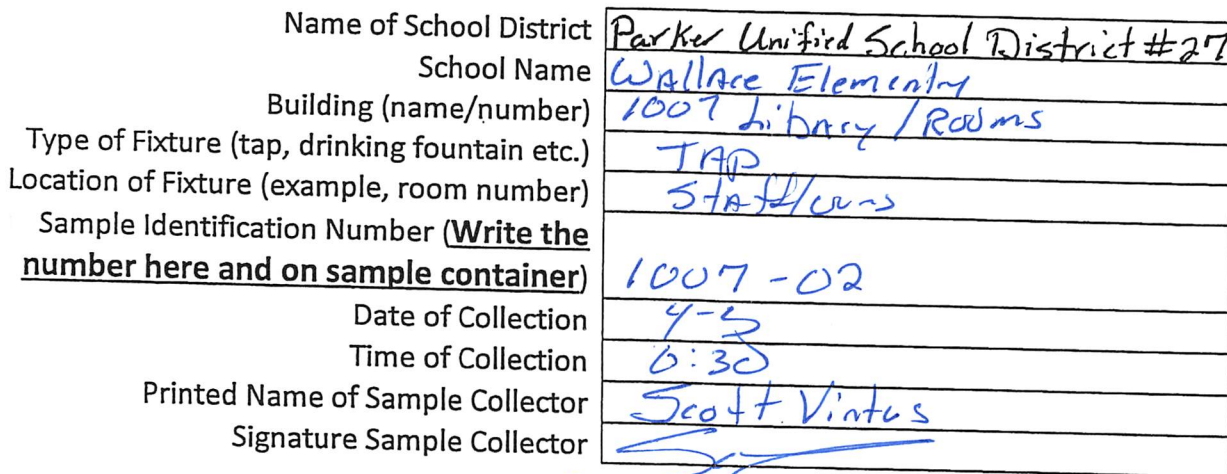 Name of School District Parker Unified School District #27
School Name Wallace Elementry
Building (name/number) 1007 Library / Rooms
Type of Fixture (tap, drinking fountain etc.) TAP
Location of Fixture (example, room number) Staff
Sample Identification Number (Write the
number here and on sample container) 1007-02
Date of Collection 4-5
Time of Collection 6:30
Printed Name of Sample Collector Scott Vintus
Signature Sample Collector